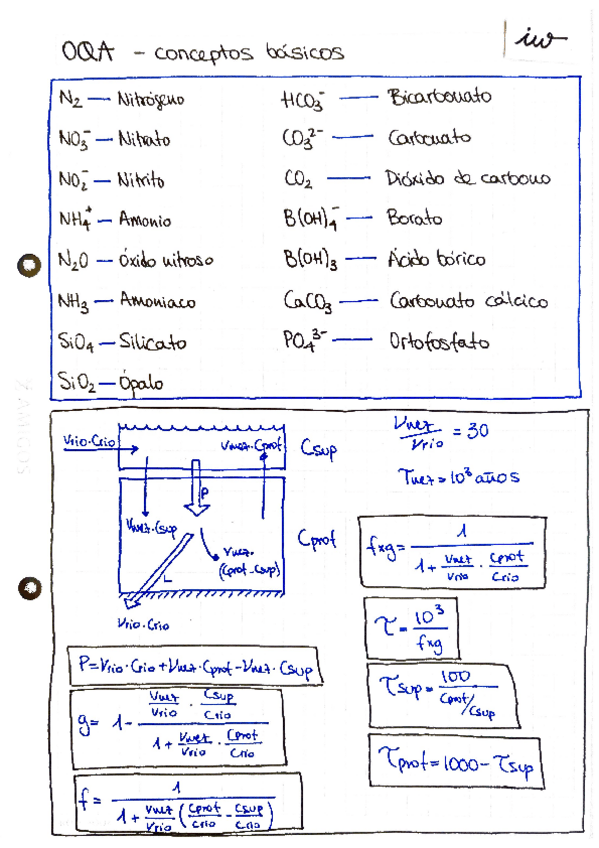 OQA - conceptos básicos
iw
N₂ — Nitrógeno
NO₃⁻ — Nitrato
NO₂⁻ — Nitrito
NH₄⁺ — Amonio
N₂O — Óxido nitroso
NH₃ — Amoniaco
SiO₄ — Silicato
SiO₂ — Ópalo
HCO₃⁻ — Bicarbonato
CO₃²⁻ — Carbonato
CO₂ — Dióxido de carbono
B(OH)₄⁻ — Borato
B(OH)₃ — Ácido bórico
CaCO₃ — Carbonato cálcico
PO₄³⁻ — Ortofosfato
Vrio·Crio
Vmez·Cprof
Csup
P
Vmez·Csup
Vmez·
(Cprof-Csup)
L
Cprof
Vrio·Crio
Vmez/Vrio = 30
Tmez = 10³ años
fxg = 1 / (1 + Vmez/Vrio · Cprof/Crio)
τ = 10³ / fxg
τsup = 100 / (Cprof/Csup)
τprof = 1000 - τsup
P = Vrio·Crio + Vmez·Cprof - Vmez·Csup
g = 1 - (Vmez/Vrio · Csup/Crio) / (1 + Vmez/Vrio · Cprof/Crio)
f = 1 / (1 + Vmez/Vrio (Cprof/Crio - Csup/Crio))